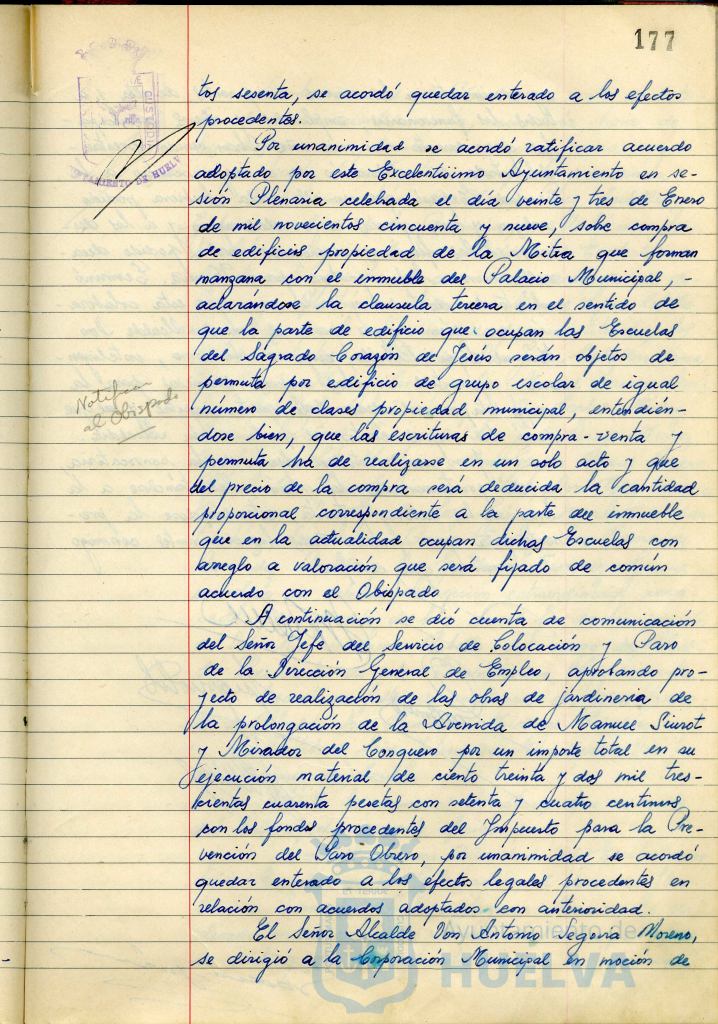 177
tos sesenta, se acordó quedar enterado a los efectos
procedentes.
Por unanimidad se acordó ratificar acuerdo
adoptado por este Excelentísimo Ayuntamiento en se-
sión Plenaria celebrada el día veinte y tres de Enero
de mil novecientos cincuenta y nueve, sobre compra
de edificios propiedad de la Mitra que forman
manzana con el inmueble del Palacio Municipal, -
aclarándose la clausula tercera en el sentido de
que la parte de edificio que ocupan las Escuelas
del Sagrado Corazón de Jesús serán objetos de
permuta por edificio de grupo escolar de igual
número de clases propiedad municipal, entendién-
dose bien, que las escrituras de compra-venta y
permuta ha de realizarse en un solo acto y que
del precio de la compra será deducida la cantidad
proporcional correspondiente a la parte del inmueble
que en la actualidad ocupan dichas Escuelas con
arreglo a valoración que será fijado de común
acuerdo con el Obispado
Notificar
al Obispado
A continuación se dió cuenta de comunicación
del Señor Jefe del Servicio de Colocación y Paro
de la Dirección General de Empleo, aprobando pro-
yecto de realización de las obras de jardineria de
la prolongación de la Avenida de Manuel Siurot
y Mirador del Conquero por un importe total en su
ejecución material de ciento treinta y dos mil tres-
cientas cuarenta pesetas con setenta y cuatro centimos
con los fondos procedentes del Impuesto para la Pre-
vención del Paro Obrero, por unanimidad se acordó
quedar enterado a los efectos legales procedentes en
relación con acuerdos adoptados con anterioridad.
El Señor Alcalde Don Antonio Segovia Moreno,
se dirigió a la Corporación Municipal en moción de
Ayuntamiento de
HUELVA